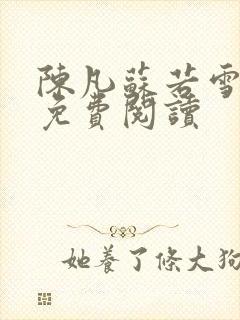 陳凡蘇若雪
免費閱讀
她養了條大狗